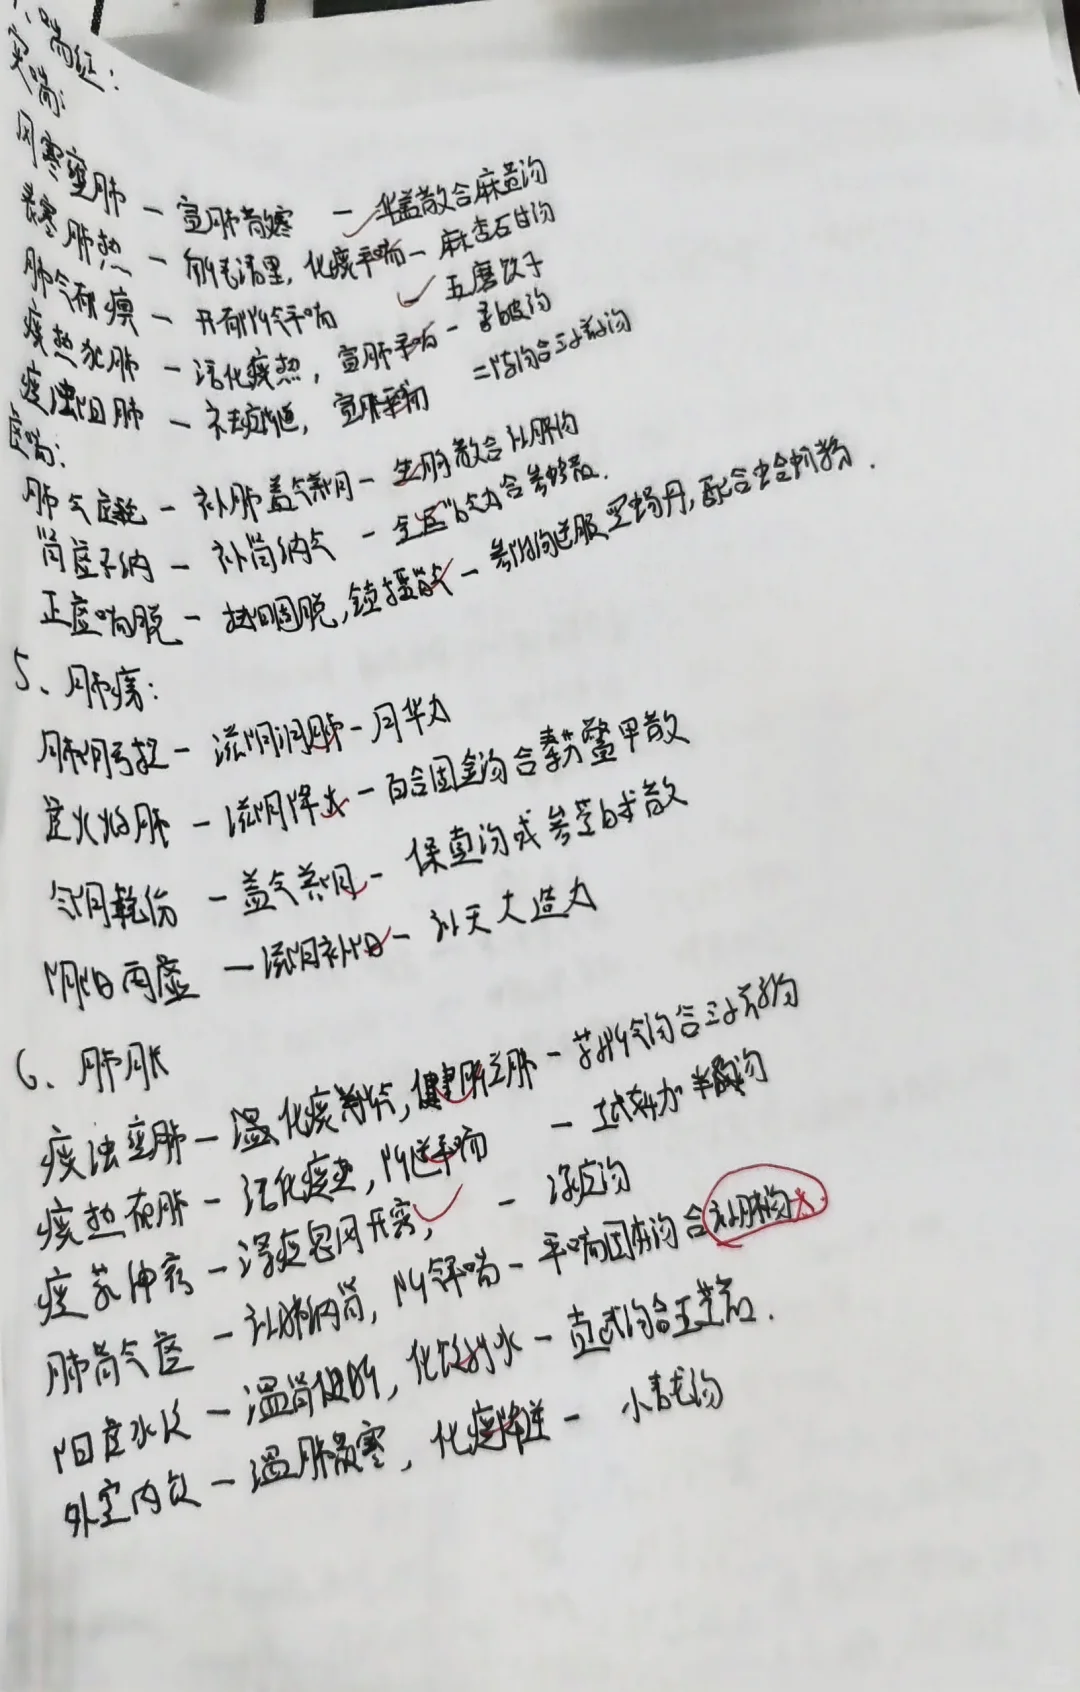 、喘证：
实喘：
风寒壅肺－宣肺散寒－华盖散合麻黄汤
表寒肺热－解表清里，化痰平喘－麻杏石甘汤
肺气郁痹－开郁降气平喘 五磨饮子
痰热郁肺－清化痰热，宣肺平喘－桑白皮汤
痰浊阻肺－祛痰降逆，宣肺平喘 二陈汤合三子养亲汤
虚喘：
肺气虚耗－补肺益气养阴－生脉散合补肺汤
肾虚不纳－补肾纳气－金匮肾气丸合参蛤散.
正虚喘脱－扶阳固脱，镇摄肾气－参附汤送服黑锡丹，配合蛤蚧粉.
5、肺痨：
肺阴亏损－滋阴润肺－月华丸
虚火灼肺－滋阴降火－百合固金汤合秦艽鳖甲散
气阴耗伤－益气养阴－保真汤或参苓白术散
阴阳两虚－滋阴补阳－补天大造丸
6、肺胀
痰浊壅肺－温化痰 降气，健脾益肺－苏子降气汤合三子养亲汤
痰热郁肺－清化痰热，降逆平喘－越婢加半夏汤
痰蒙神窍－涤痰息风开窍，－涤痰汤
肺肾气虚－补肺纳肾，降气平喘－平喘固本汤合补肺汤
阳虚水泛－温肾健脾，化饮利水－真武汤合五苓散.
外寒内饮－温肺散寒，化痰降逆－小青龙汤